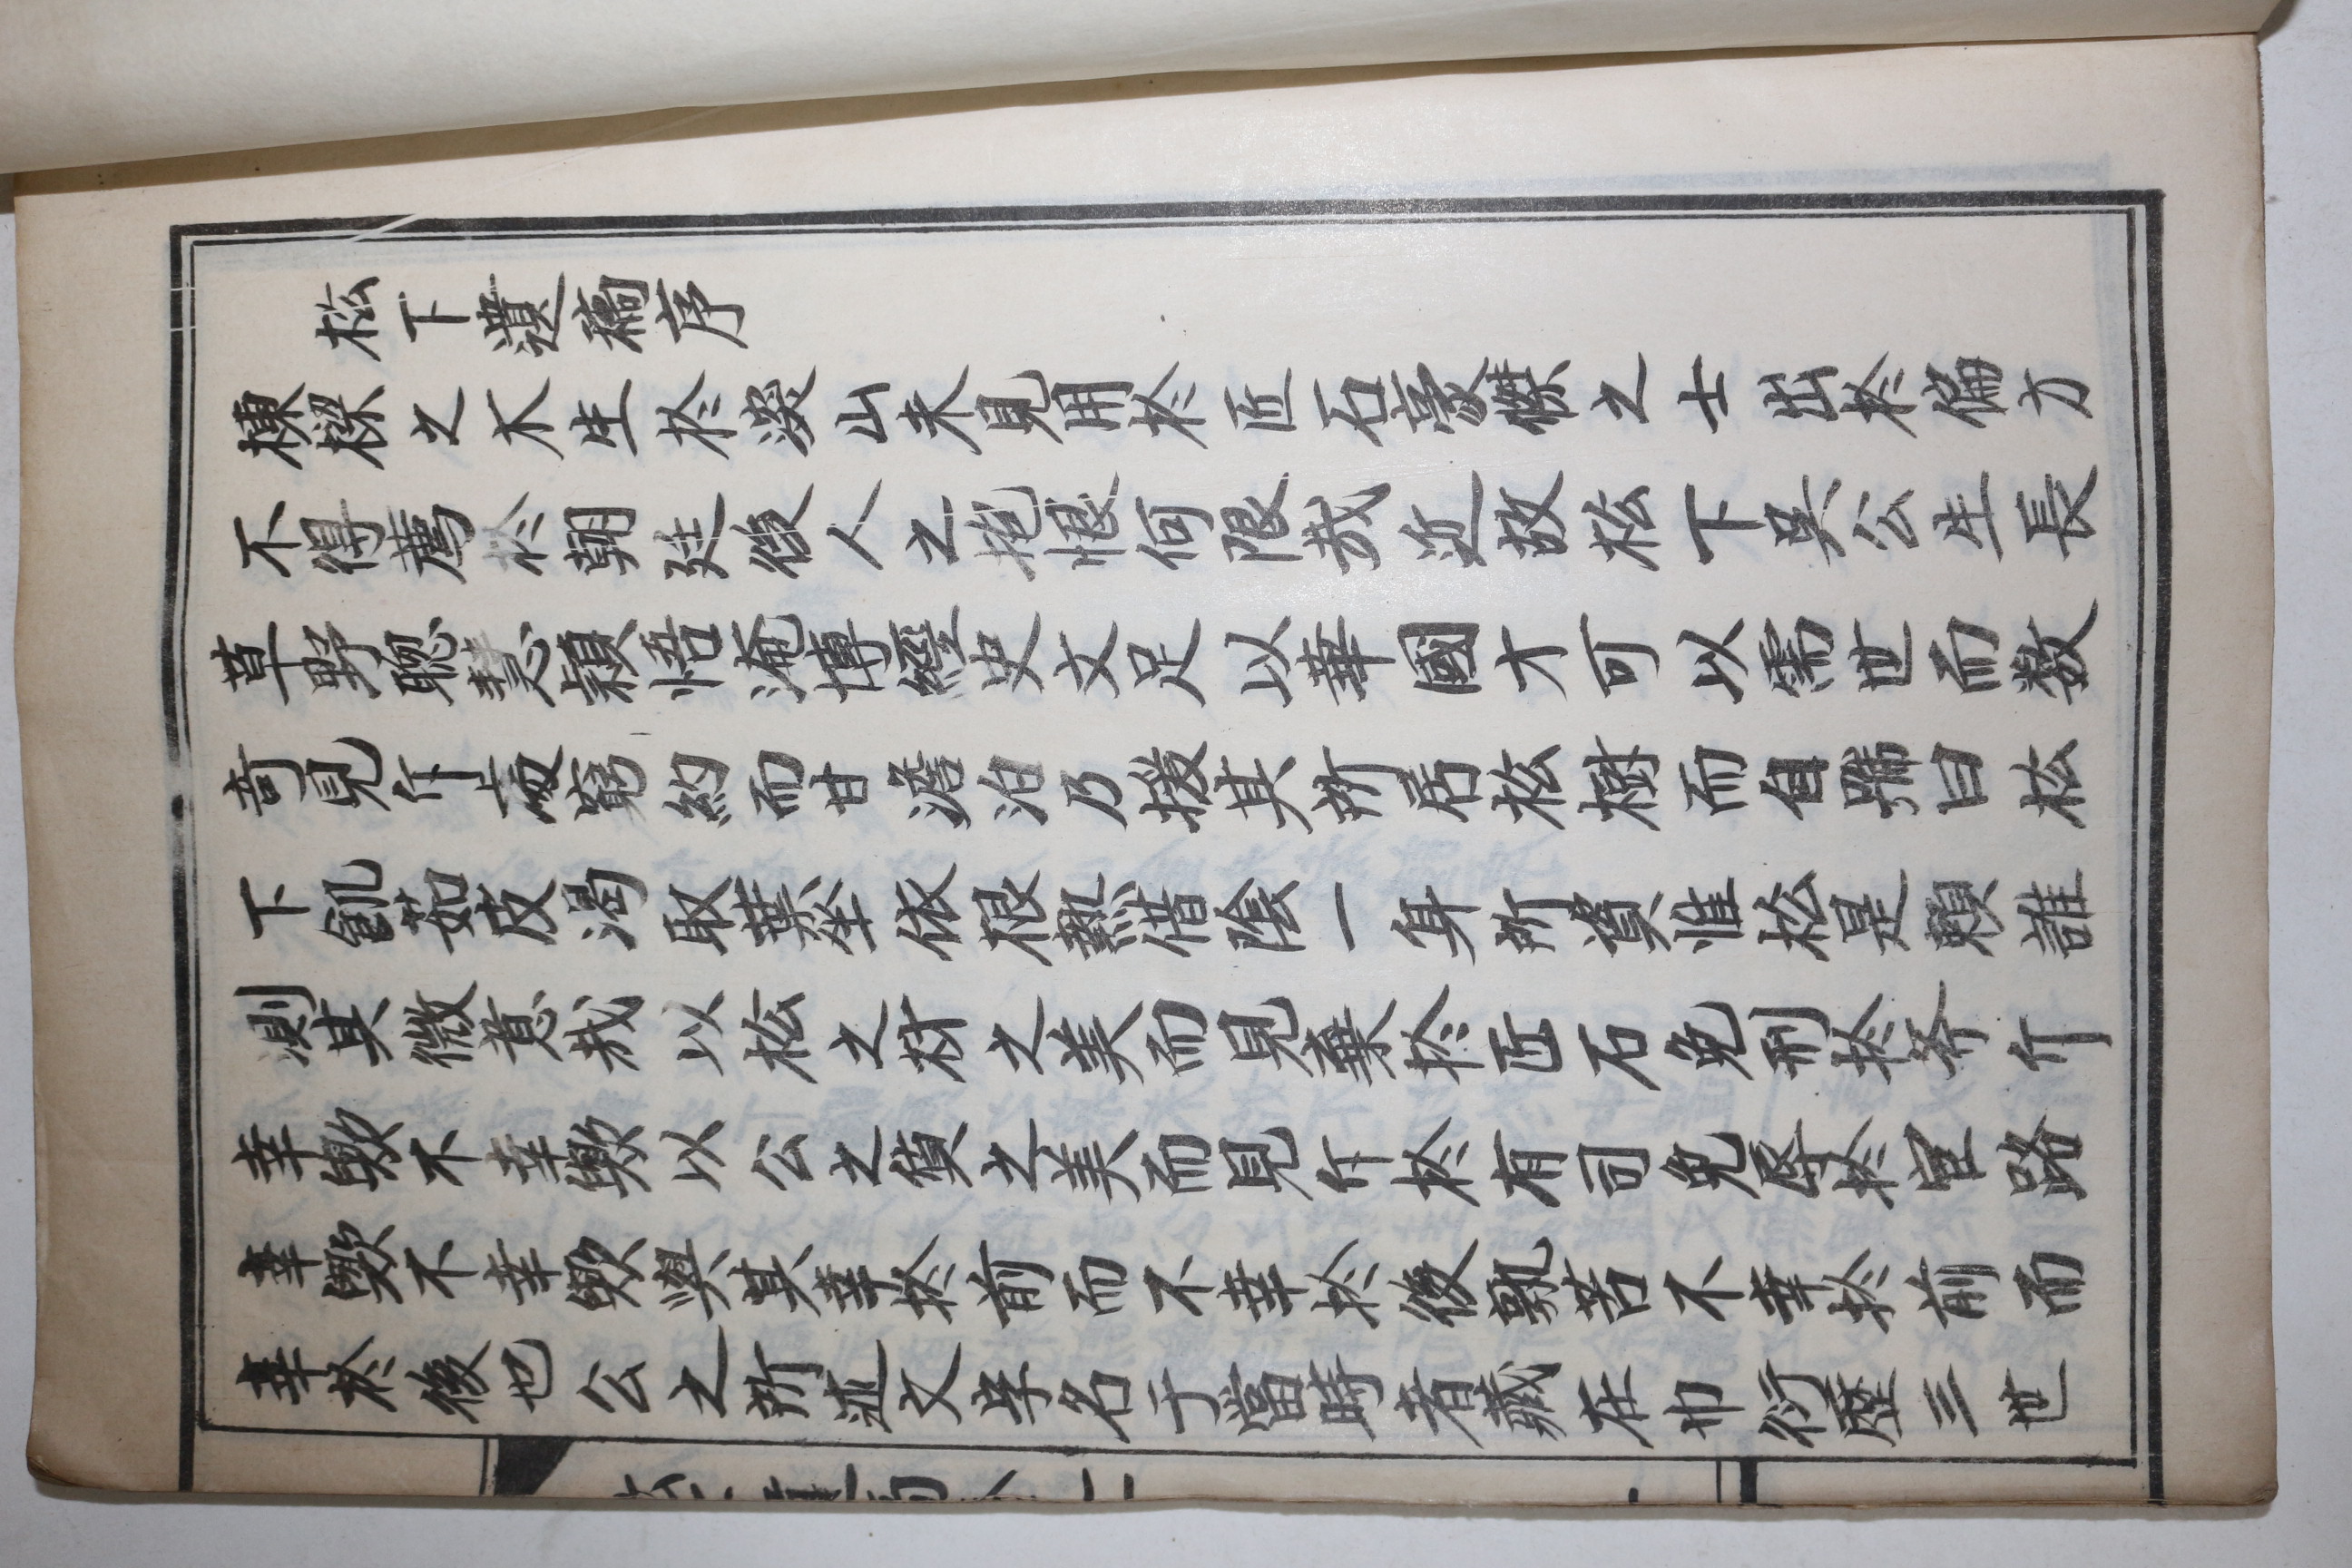 松下遺稿序
棟樑之木生於深山未見用於匠石豪傑之士出於偏方
不得薦於朝廷後人之抱恨何限哉近故松下吳公生長
草野聰慧穎悟淹博經史文足以華國才可以需世而数
奇見斥處窮約而甘澹泊乃援其所居松樹而自號曰松
下飢茹皮渴取葉坐依根熱借陰一身所資惟松是賴誰
測其微意哉以松之材之美而見棄於匠石免刑於斧斤
幸歟不幸歟以公之質之美而見斥於有司免辱於宦路
幸歟不幸歟與其幸於前而不幸於後孰若不幸於前而
幸於後也公之所述文字名于當時者藏在巾衍歷三世